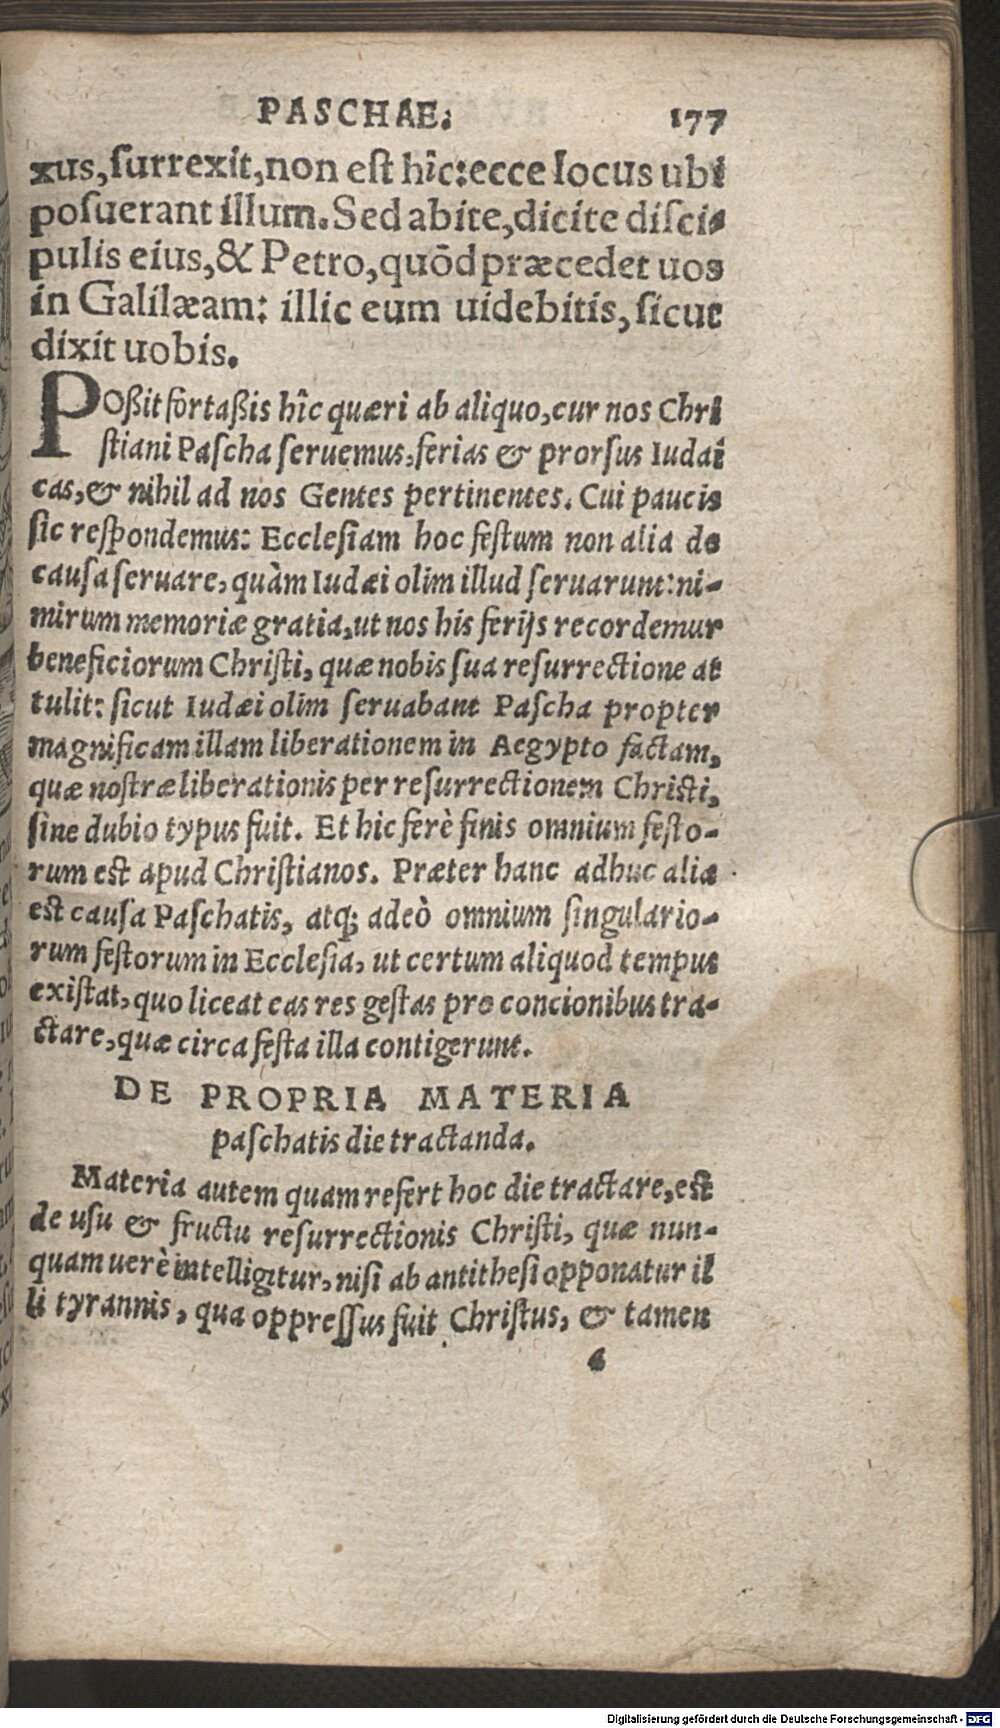 PASCHAE. 177
xus, ſurrexit, non eſt hîc: ecce locus ubi
poſuerant illum. Sed abite, dicite diſci-
pulis eius, & Petro, quòd præcedet uos
in Galilæam: illic eum uidebitis, ſicut
dixit uobis.
POßit fortaßis hîc quæri ab aliquo, cur nos Chri
ſtiani Paſcha ſeruemus, ferias & prorſus Iudai
cas, & nihil ad nos Gentes pertinentes. Cui paucis
ſic reſpondemus: Eccleſiam hoc feſtum non alia de
cauſa ſeruare, quàm Iudæi olim illud ſeruarunt: ni-
mirum memoriæ gratia, ut nos his ferijs recordemur
beneficiorum Chriſti, quæ nobis ſua reſurrectione at
tulit: ſicut Iudæi olim ſeruabant Paſcha propter
magnificam illam liberationem in Aegypto factam,
quæ noſtræ liberationis per reſurrectionem Chriſti,
ſine dubio typus fuit. Et hic ferè finis omnium feſto-
rum eſt apud Chriſtianos. Præter hanc adhuc alia
eſt cauſa Paſchatis, atq; adeò omnium ſingulario-
rum feſtorum in Eccleſia, ut certum aliquod tempus
exiſtat, quo liceat eas res geſtas pro concionibus tra-
ctare, quæ circa feſta illa contigerunt.
DE PROPRIA MATERIA
paſchatis die tractanda.
Materia autem quam refert hoc die tractare, eſt
de uſu & fructu reſurrectionis Chriſti, quæ nun-
quam uerè intelligitur, niſi ab antitheſi opponatur il
li tyrannis, qua oppreſſus fuit Chriſtus, & tamen
a
Digitalisierung gefördert durch die Deutsche Forschungsgemeinschaft - DFG